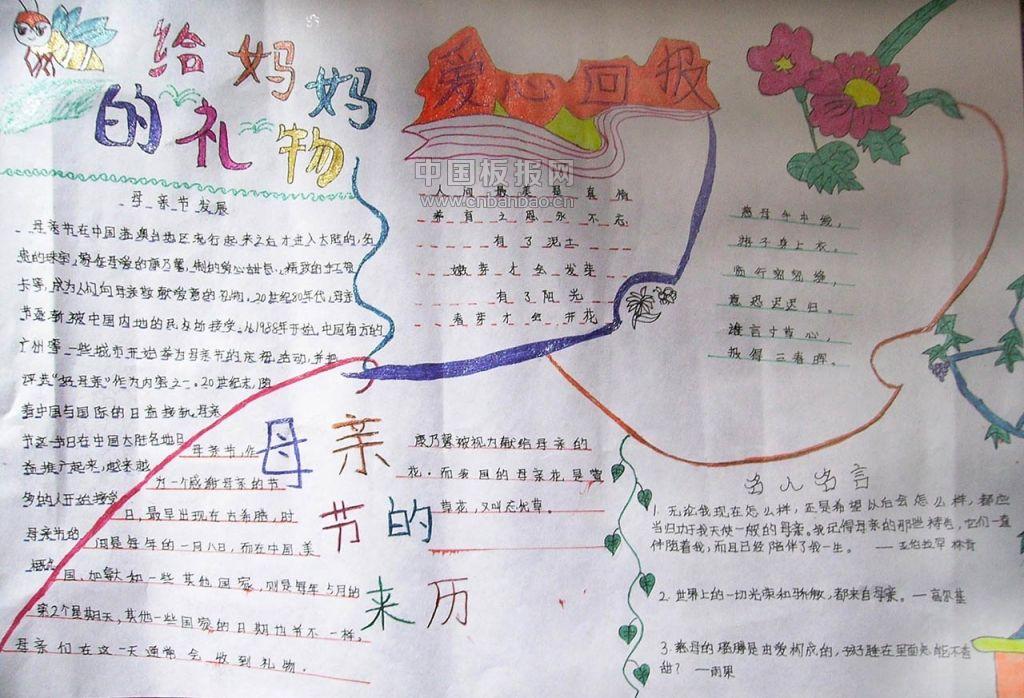 给妈妈
的礼物
母亲节发展
母亲节在中国港澳台地区流行起来之后才进入大陆的,名
贵的珠宝,象征母爱的康乃馨,制的爱心甜包,精致的手工贺
卡等,成为人们向母亲敬献爱意的礼物。20世纪80年代,母亲
节逐渐被中国内地的民众所接受。从1988年开始,中国南方的
广州等一些城市开始举办母亲节的庆祝活动,并把
评选“好母亲”作为内容之一。20世纪末,随
着中国与国际的日益接轨,母亲
节这一节日在中国大陆各地日
益推广起来,越来越
多的人开始接受
母亲节的
概念
母亲节的来历
母亲节,作
为一个感谢母亲的节
日,最早出现在古希腊,时
间是每年的一月八日,而在中国、美
国、加拿大和一些其他国家,则是每年5月的
第2个星期天,其他一些国家的日期也并不一样。
母亲们在这一天通常会收到礼物。
康乃馨被视为献给母亲的
花。而我国的母亲花是萱
草花,又叫忘忧草。
爱心回报
中国板报网
www.cnbanbao.cn
人间最美是真情
养育之恩永不忘
有了泥土
嫩芽才会发芽
有了阳光
春芽才会开花
慈母手中线,
游子身上衣。
临行密密缝,
意恐迟迟归。
谁言寸草心,
报得三春晖。
名人名言
1. 无论我现在怎么样,还是希望以后会怎么样,都应
当归功于我天使一般的母亲。我记得母亲的那些祷告,它们一直
伴随着我,而且已经陪伴了我一生。——亚伯拉罕·林肯
2. 世界上的一切光荣和骄傲,都来自母亲。——高尔基
3. 慈母的胳膊是由爱构成的,孩子睡在里面怎能不香
甜?——雨果